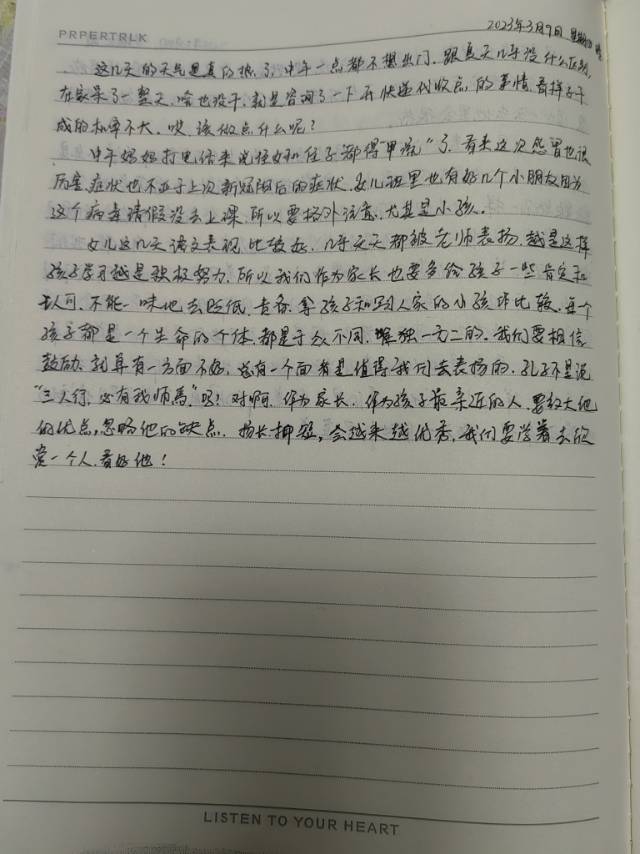 PRPERTRLK
2023年3月9日 星期四 晴
这几天的天气是真的热了,中午一点都不想出门,跟夏天几乎没什么区别,
在家呆了一整天,啥也没干,就是咨询了一下开快递代收点的事情,看样子干
成的机率不大,哎,该做点什么呢?
中午妈妈打电话来说侄女和侄子都得"甲流"了,看来这次感冒也很
厉害,症状也不亚于上次新冠阳后的症状,女儿班里也有好几个小朋友因为
这个病毒请假没去上课,所以要格外注意,尤其是小孩。
女儿这几天语文表现比较好,几乎天天都被老师表扬,越是这样
孩子学习越是积极努力,所以我们作为家长也要多给孩子一些肯定和
认可,不能一味地去贬低、责备,拿孩子和别人家的小孩作比较,每个
孩子都是一个生命的个体,都是于众不同,独一无二的,我们要相信
鼓励,就算有一方面不好,总有一个面都是值得我们去表扬的,孔子不是说
"三人行,必有我师焉"吗!对啊,作为家长,作为孩子最亲近的人,要放大他
的优点,忽略他的缺点,扬长抑短,会越来越优秀,我们要学着去欣
赏一个人,看好他!
LISTEN TO YOUR HEART